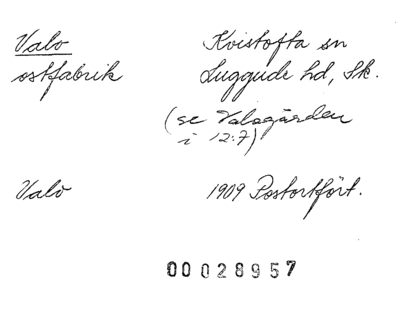 Valo Kvistofta sn
ostfabrik Luggude hd, Sk.
(se Valagården
i 12:7)
Valo 1909 Postortfört.
00028957